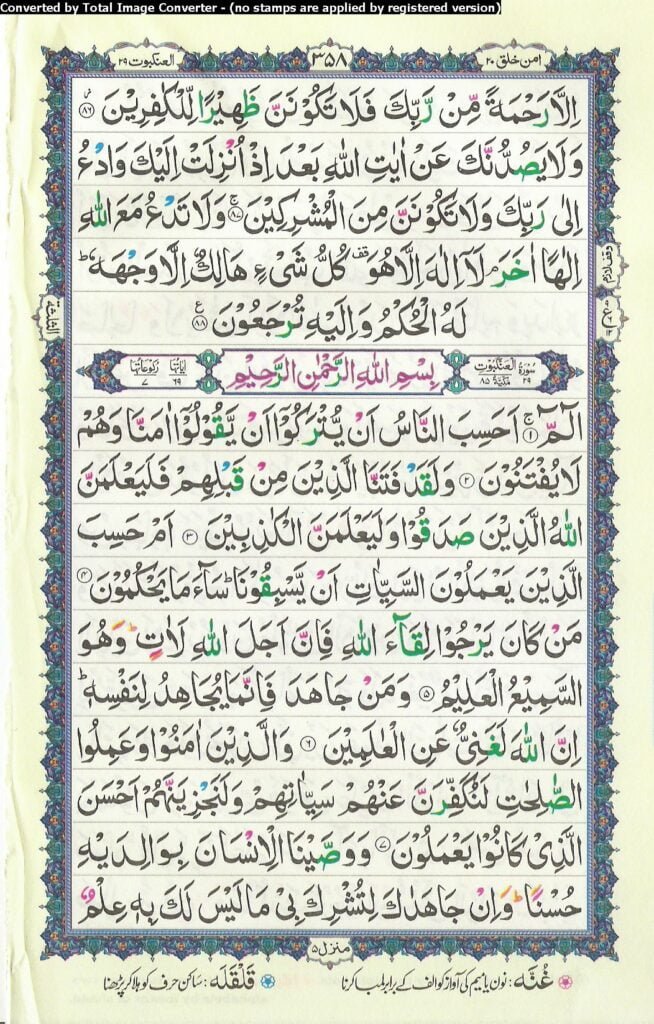 Converted by Total Image Converter - (no stamps are applied by registered version)
امن خلق ۲۰
۳۵۸
العنكبوت ۲۹
اِلَّا رَحْمَةً مِّنْ رَّبِّكَ فَلَا تَكُوْنَنَّ ظَهِيْرًا لِّلْكٰفِرِيْنَ ۸۶
وَلَا يَصُدُّنَّكَ عَنْ اٰيٰتِ اللّٰهِ بَعْدَ اِذْ اُنْزِلَتْ اِلَيْكَ وَادْعُ
اِلٰى رَبِّكَ وَلَا تَكُوْنَنَّ مِنَ الْمُشْرِكِيْنَ ۚ ۸۷ وَلَا تَدْعُ مَعَ اللّٰهِ
اِلٰهًا اٰخَرَ ۘ لَاۤ اِلٰهَ اِلَّا هُوَ ۫ كُلُّ شَيْءٍ هَالِكٌ اِلَّا وَجْهَهٗ ؕ
لَهُ الْحُكْمُ وَاِلَيْهِ تُرْجَعُوْنَ ۸۸
وقف لازم
الثلثة
سورة العنكبوت مكية ۸۵ ۲۹
بِسْمِ اللّٰهِ الرَّحْمٰنِ الرَّحِيْمِ
اٰياتها ۶۹ ركوعاتها ۷
الٓمّٓ ۚ ۱ اَحَسِبَ النَّاسُ اَنْ يُّتْرَكُوْۤا اَنْ يَّقُوْلُوْۤا اٰمَنَّا وَهُمْ
لَا يُفْتَنُوْنَ ۲ وَلَقَدْ فَتَنَّا الَّذِيْنَ مِنْ قَبْلِهِمْ فَلَيَعْلَمَنَّ
اللّٰهُ الَّذِيْنَ صَدَقُوْا وَلَيَعْلَمَنَّ الْكٰذِبِيْنَ ۳ اَمْ حَسِبَ
الَّذِيْنَ يَعْمَلُوْنَ السَّيِّاٰتِ اَنْ يَّسْبِقُوْنَا ؕ سَآءَ مَا يَحْكُمُوْنَ ۴
مَنْ كَانَ يَرْجُوْا لِقَآءَ اللّٰهِ فَاِنَّ اَجَلَ اللّٰهِ لَاٰتٍ ؕ وَهُوَ
السَّمِيْعُ الْعَلِيْمُ ۵ وَمَنْ جَاهَدَ فَاِنَّمَا يُجَاهِدُ لِنَفْسِهٖ ؕ
اِنَّ اللّٰهَ لَغَنِيٌّ عَنِ الْعٰلَمِيْنَ ۶ وَالَّذِيْنَ اٰمَنُوْا وَعَمِلُوا
الصّٰلِحٰتِ لَنُكَفِّرَنَّ عَنْهُمْ سَيِّاٰتِهِمْ وَلَنَجْزِيَنَّهُمْ اَحْسَنَ
الَّذِيْ كَانُوْا يَعْمَلُوْنَ ۷ وَوَصَّيْنَا الْاِنْسَانَ بِوَالِدَيْهِ
حُسْنًا ؕ وَاِنْ جَاهَدٰكَ لِتُشْرِكَ بِيْ مَا لَيْسَ لَكَ بِهٖ عِلْمٌ
منزل ۵
غُنَّه: نون یا میم کی آواز کو الف کے برابر لمبا کرنا
قَلْقَلَه: ساکن حرف کو ہلا کر پڑھنا